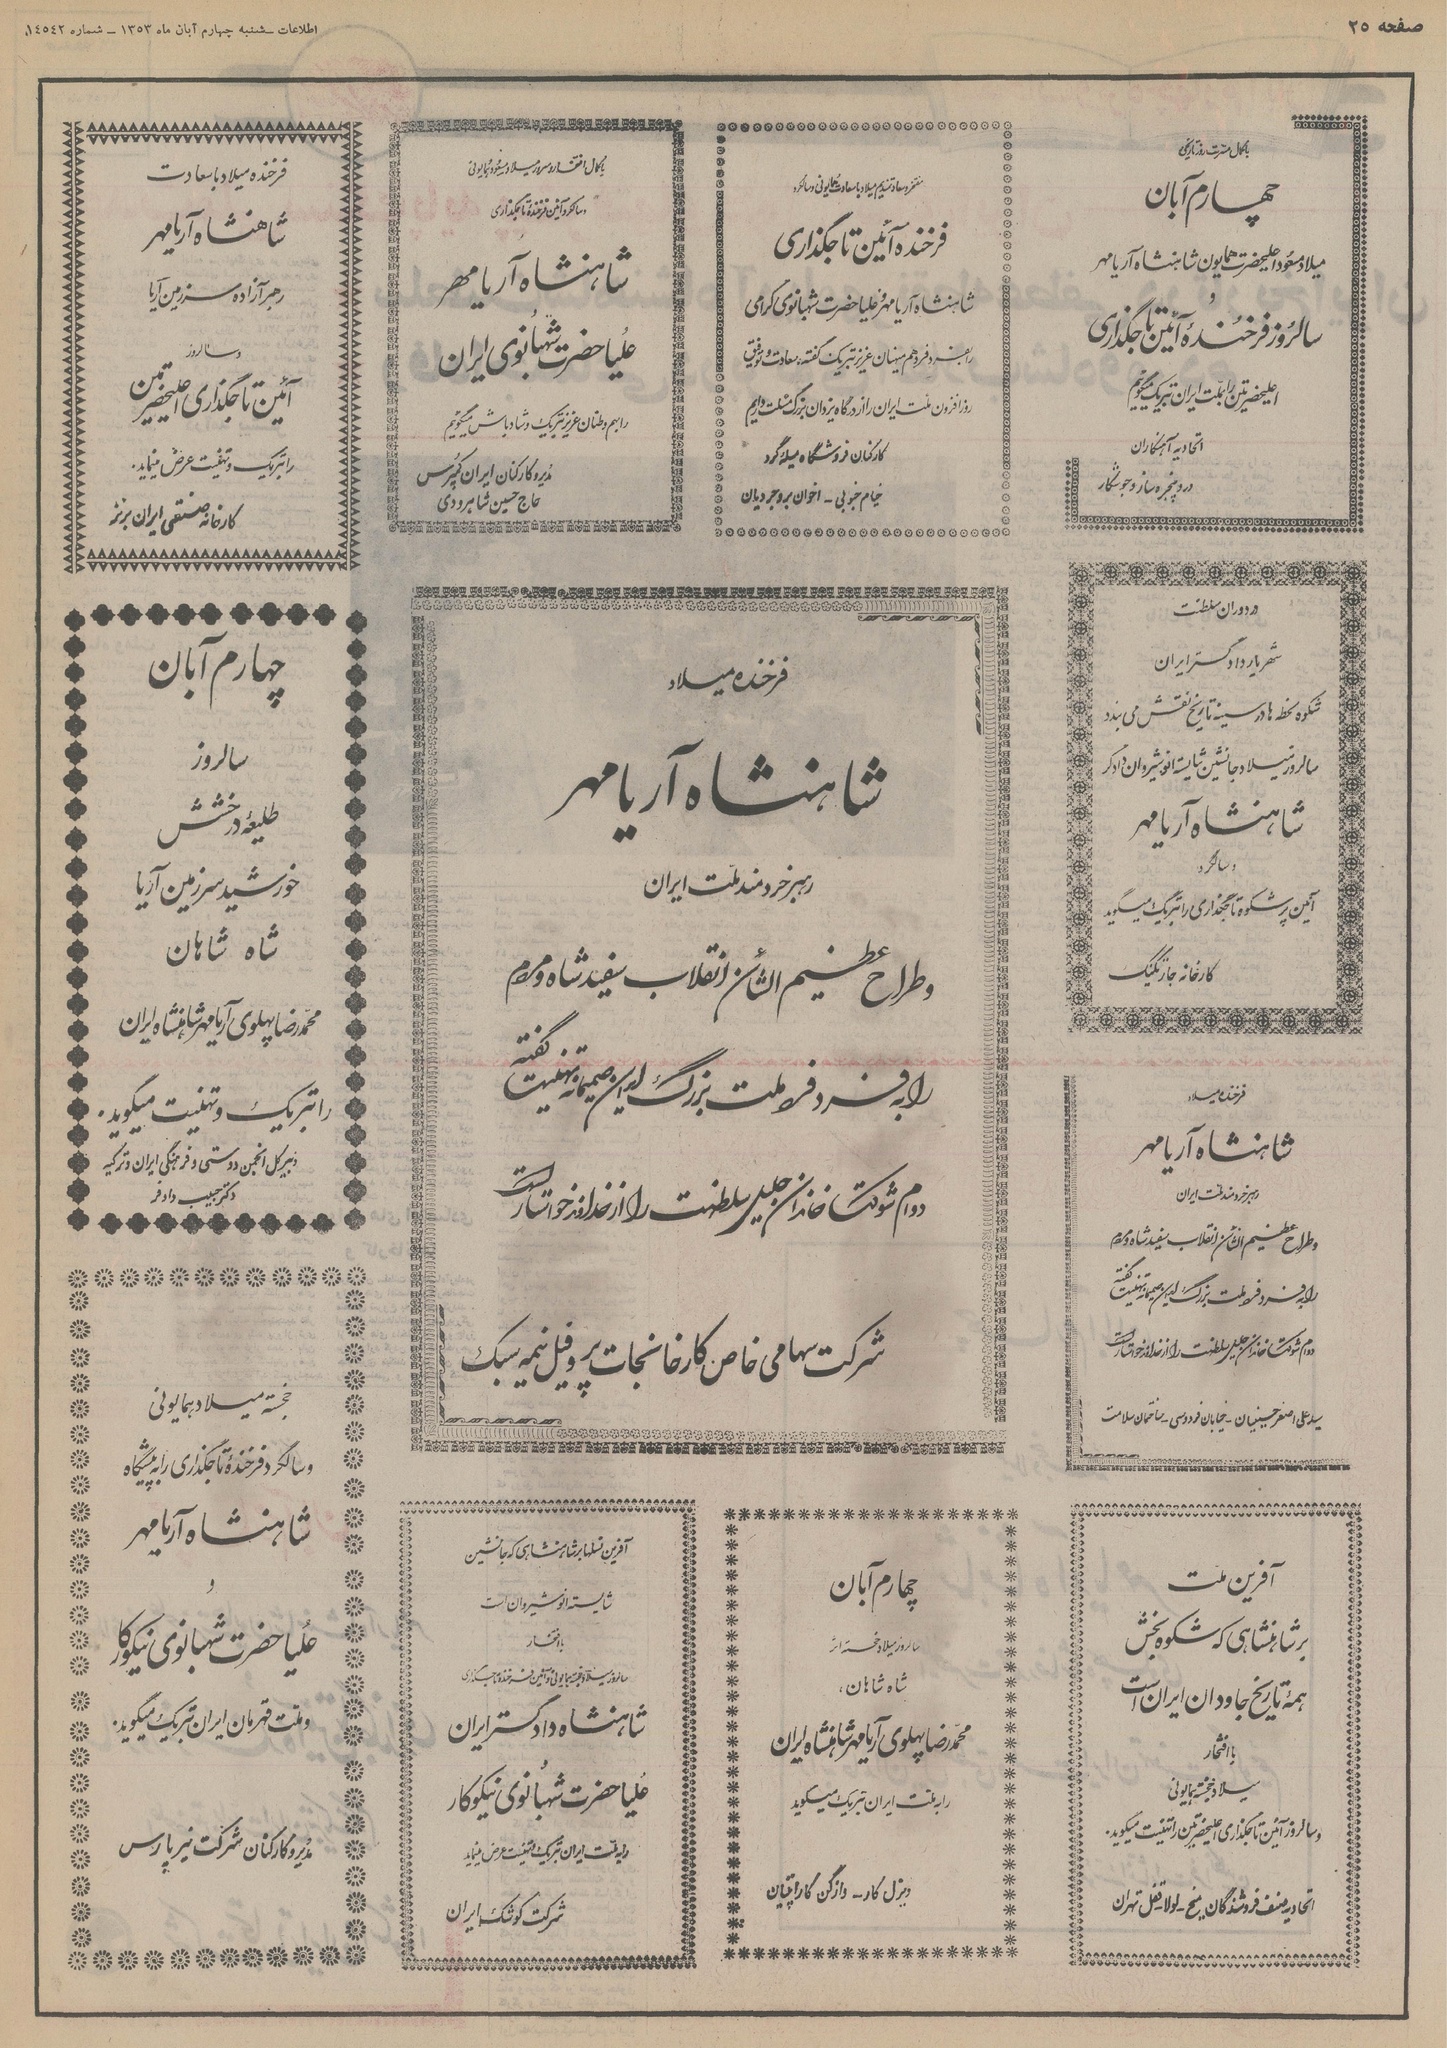 صفحه ۲۵
اطلاعات ـ شنبه چهارم آبان ماه ۱۳۵۳ ـ شماره ۱۴۵۴۲
با کمال مسرت روز تاریخی
چهارم آبان
میلاد مسعود اعلیحضرت همایون شاهنشاه آریامهر
و
سالروز فرخندهٔ آئین تاجگذاری
اعلیحضرتین را بملت ایران تبریک میگوئیم
اتحادیه آهنگاران
در و پنجره ساز و جوشکار
مفتخر و سعادتمندیم میلاد با سعادت همایونی و سالگرد
فرخنده آئین تاجگذاری
شاهنشاه آریامهر و علیا حضرت شهبانوی گرامی
را بفرد فرد هم میهنان عزیز تبریک گفته، سعادت و توفیق
روزافزون ملت ایران را از درگاه یزدان بزرگ مسئلت داریم
کارکنان فروشگاه میله گرد
خیام جنوبی ـ اخوان بروجردیان
با کمال افتخار و سرور میلاد مسعود همایونی
و سالگرد آئین فرخندهٔ تاجگذاری
شاهنشاه آریامهر
و
علیا حضرت شهبانوی ایران
را بهم وطنان عزیز تبریک و شادباش میگوئیم
مدیر و کارکنان ایران کمپرس
حاج حسین شاهرودی
فرخنده میلاد با سعادت
شاهنشاه آریامهر
رهبر آزاده سرزمین آریا
و سالروز
آئین تاجگذاری اعلیحضرتین
را تبریک و تهنیت عرض مینماید.
کارخانه صنعتی ایران برنز
در دوران سلطنت
شهریار دادگستر ایران
شکوه لحظه ها در سینه تاریخ نقش می بندد
سالروز میلاد جانشین شایسته انوشیروان دادگر
شاهنشاه آریامهر
و سالگرد
آئین پرشکوه تاجگذاری را تبریک میگوید
کارخانه جاز بلنیگ
فرخنده میلاد
شاهنشاه آریامهر
رهبر خردمند ملت ایران
و طراح عظیم الشأن انقلاب سفید شاه و مردم
را به فرد فرد ملت بزرگ ایران صمیمانه تهنیت گفته
دوام شوکت خاندان جلیل سلطنت را از خداوند خواستار است
شرکت سهامی خاص کارخانجات پروفیل نیمه سبک
چهارم آبان
سالروز
طلیعهٔ درخشش
خورشید سرزمین آریا
شاه شاهان
محمدرضا پهلوی آریامهر شاهنشاه ایران
را تبریک و تهنیت میگوید.
دبیر کل انجمن دوستی و فرهنگی ایران و ترکیه
دکتر حبیب دادفر
فرخنده میلاد
شاهنشاه آریامهر
رهبر خردمند ملت ایران
و طراح عظیم الشأن انقلاب سفید شاه و مردم
را به فرد فرد ملت بزرگ ایران صمیمانه تهنیت گفته
دوام شوکت خاندان جلیل سلطنت را از خداوند خواستار است
سید علی اصغر حسینیان ـ خیابان فردوسی ـ ساختمان سلامت
خجسته میلاد همایونی
و سالگرد فرخندهٔ تاجگذاری را به پیشگاه
شاهنشاه آریامهر
و
علیا حضرت شهبانوی نیکوکار
و ملت قهرمان ایران تبریک میگوید.
مدیر و کارکنان شرکت نیرپارس
آفرین نسلها بر شاهنشاهی که جانشین
شایسته انوشیروان است
با افتخار
سالروز میلاد خجسته همایونی و آئین فرخنده تاجگذاری
شاهنشاه دادگستر ایران
و
علیا حضرت شهبانوی نیکوکار
را به ملت ایران تبریک و تهنیت عرض مینماید
شرکت کوشک ایران
چهارم آبان
سالروز میلاد خجسته اثر
شاه شاهان،
محمدرضا پهلوی آریامهر شاهنشاه ایران
را به ملت ایران تبریک میگوید
دیزل کار ـ وازگن کاراپتیان
آفرین ملت
بر شاهنشاهی که شکوه بخش
همهٔ تاریخ جاودان ایران است
با افتخار
میلاد خجسته همایونی
و سالروز آئین تاجگذاری اعلیحضرتین را تهنیت میگوید.
اتحادیه صنف فروشندگان میخ ـ لولا ـ قفل تهران